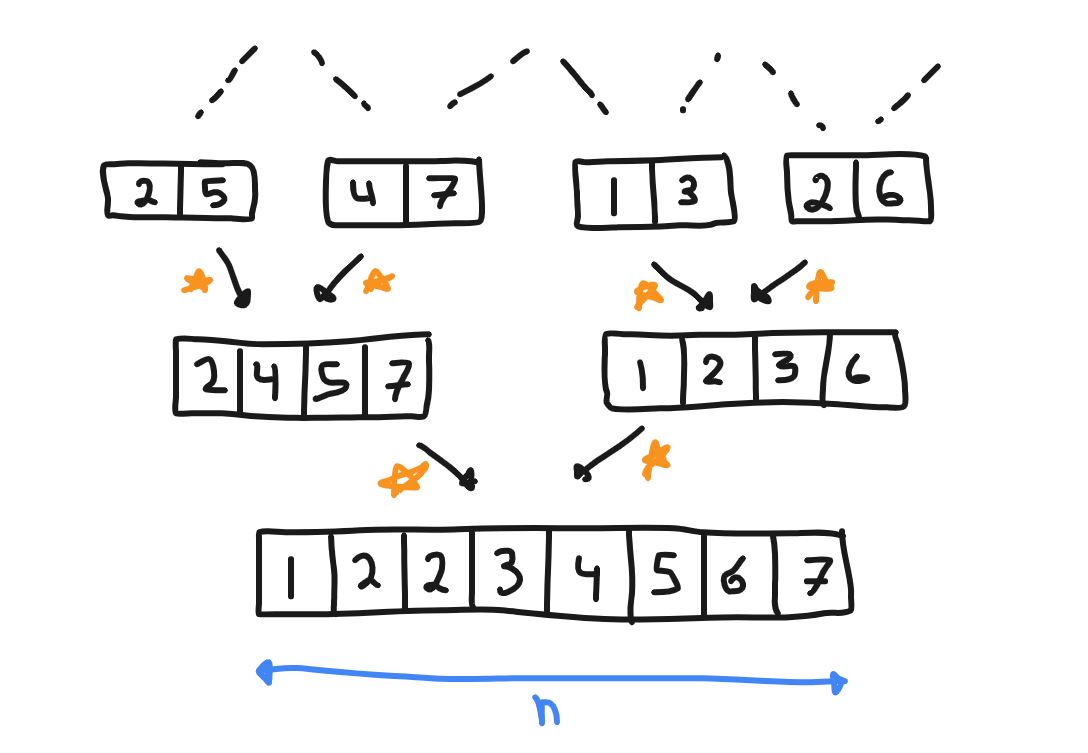 2 5 4 7 1 3 2 6
2 4 5 7 1 2 3 6
1 2 2 3 4 5 6 7
n